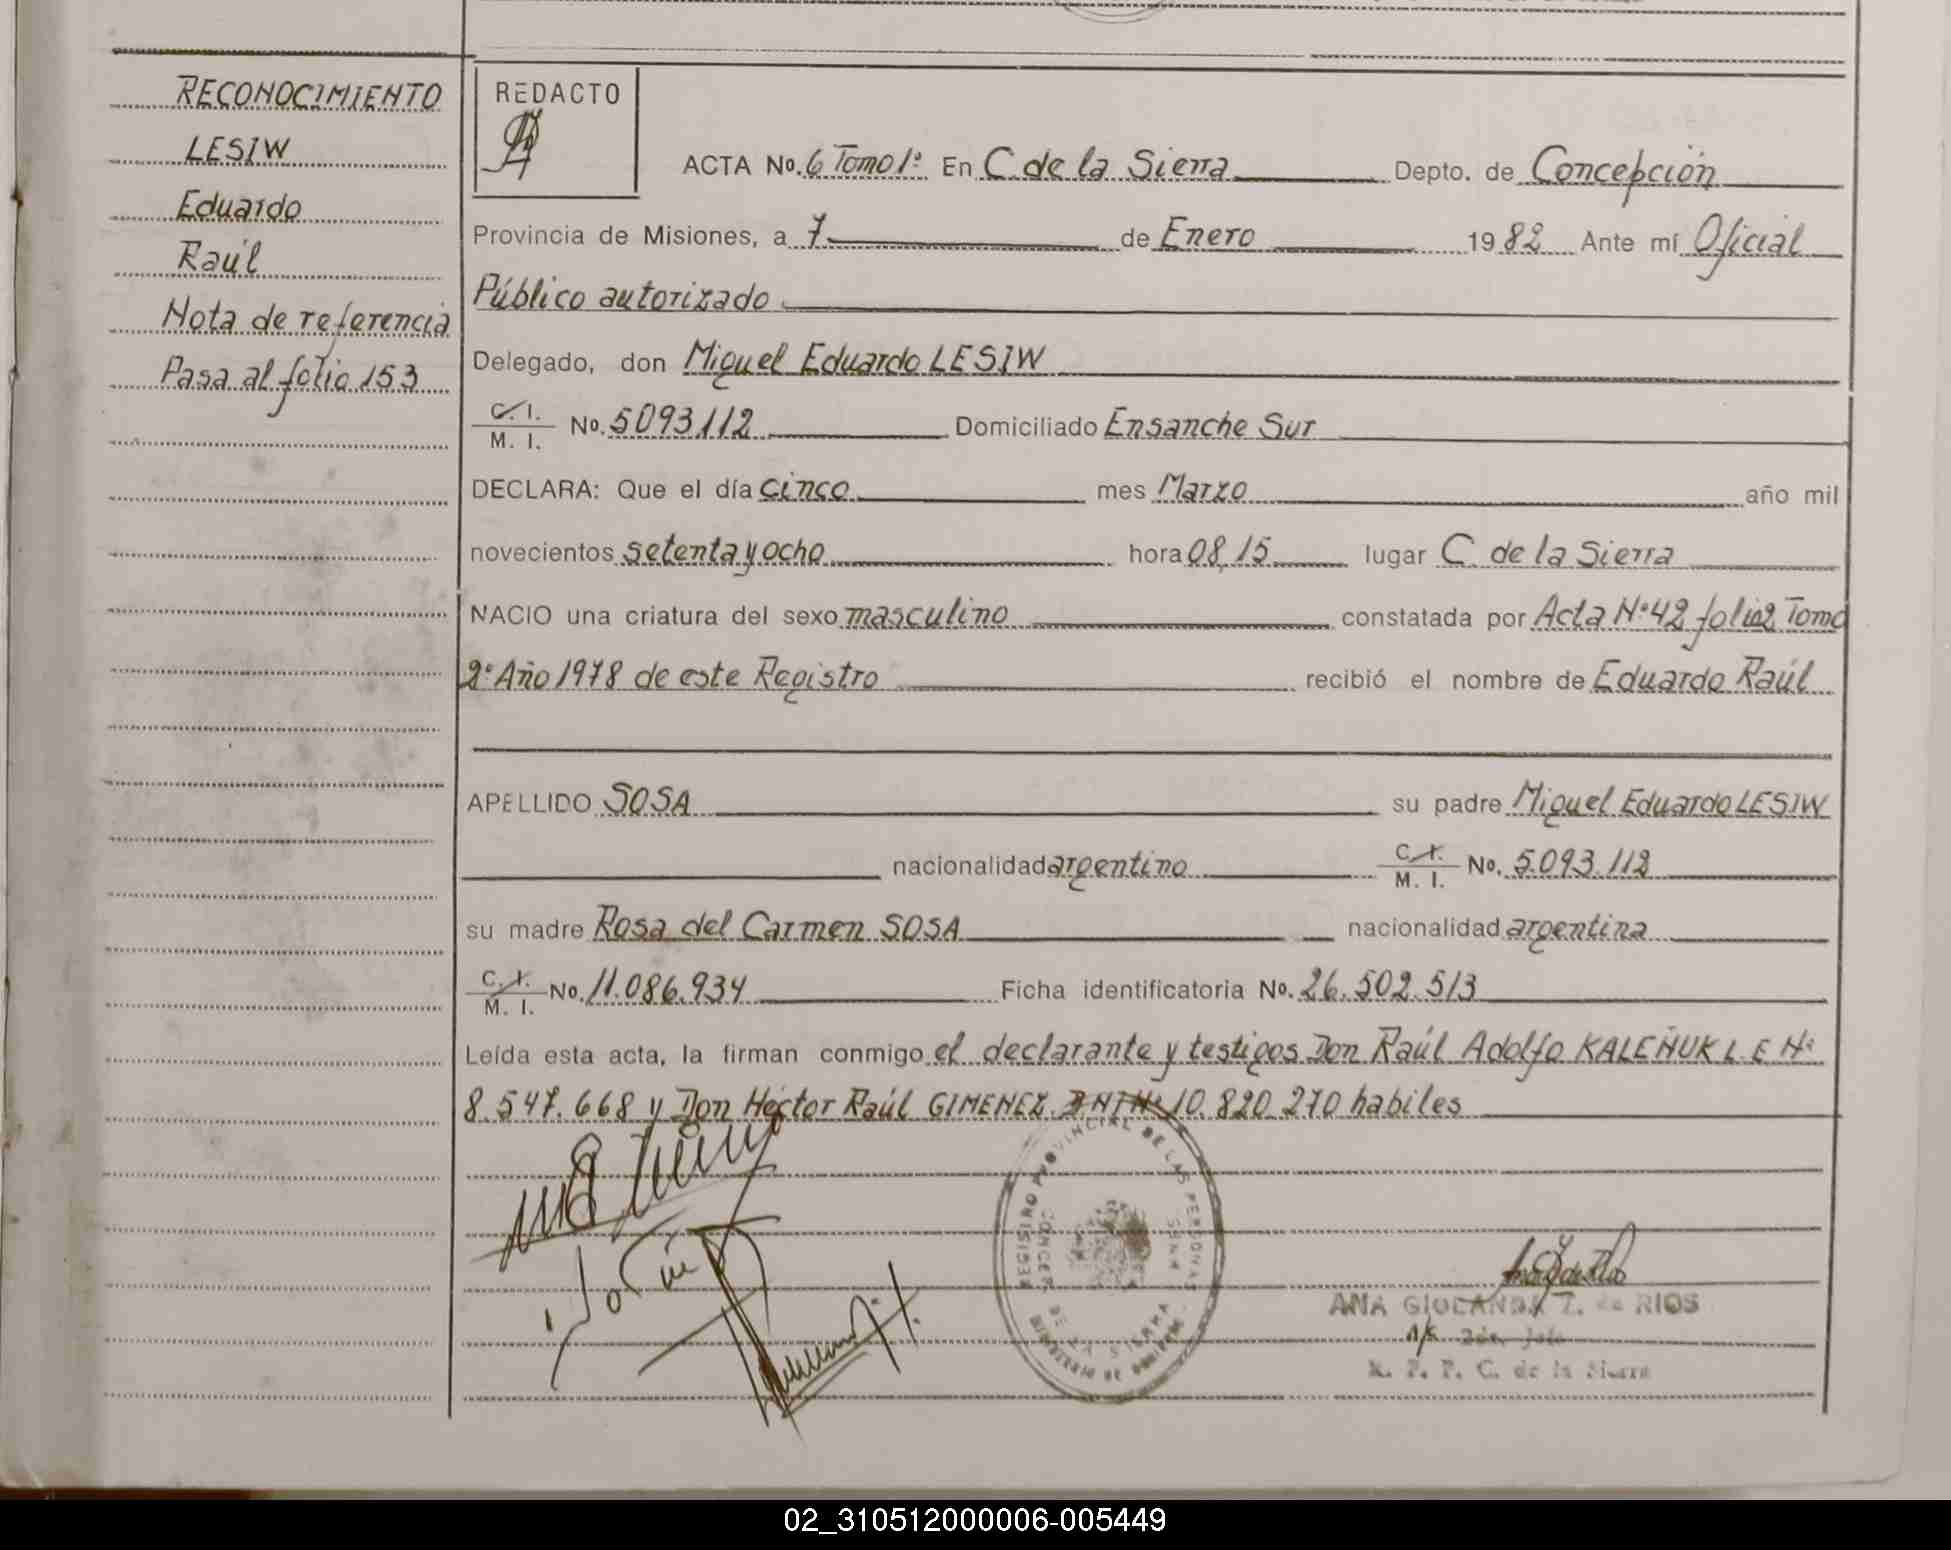 RECONOCIMIENTO
LESIW
Eduardo
Raúl
Nota de referencia
Pasa al folio 153
REDACTO
ACTA No. 6 Tomo 1º En C. de la Sierra Depto. de Concepción
Provincia de Misiones, a 7 de Enero 1982 Ante mí Oficial
Público autorizado
Delegado, don Miguel Eduardo LESIW
C. I. / M. I. No. 5093112 Domiciliado Ensanche Sur
DECLARA: Que el día cinco mes Marzo año mil
novecientos setenta y ocho hora 08,15 lugar C. de la Sierra
NACIO una criatura del sexo masculino constatada por Acta Nº 42 folio 2 Tomo
2º Año 1978 de este Registro recibió el nombre de Eduardo Raúl
APELLIDO SOSA su padre Miguel Eduardo LESIW
nacionalidad argentino C. I. / M. I. No. 5.093.112
su madre Rosa del Carmen SOSA nacionalidad argentina
C. I. / M. I. No. 11.086.934 Ficha identificatoria No. 26.502.513
Leída esta acta, la firman conmigo el declarante y testigos Don Raúl Adolfo KALEÑUK L.E Nº
8.547.668 y Don Héctor Raúl GIMENEZ DNI Nº 10.820.270 habiles
REGISTRO PROVINCIAL DE LAS PERSONAS
DE LA SIERRA
ANA GIOLANDA T. de RIOS
R. P. P. C. de la Sierra
02_310512000006-005449